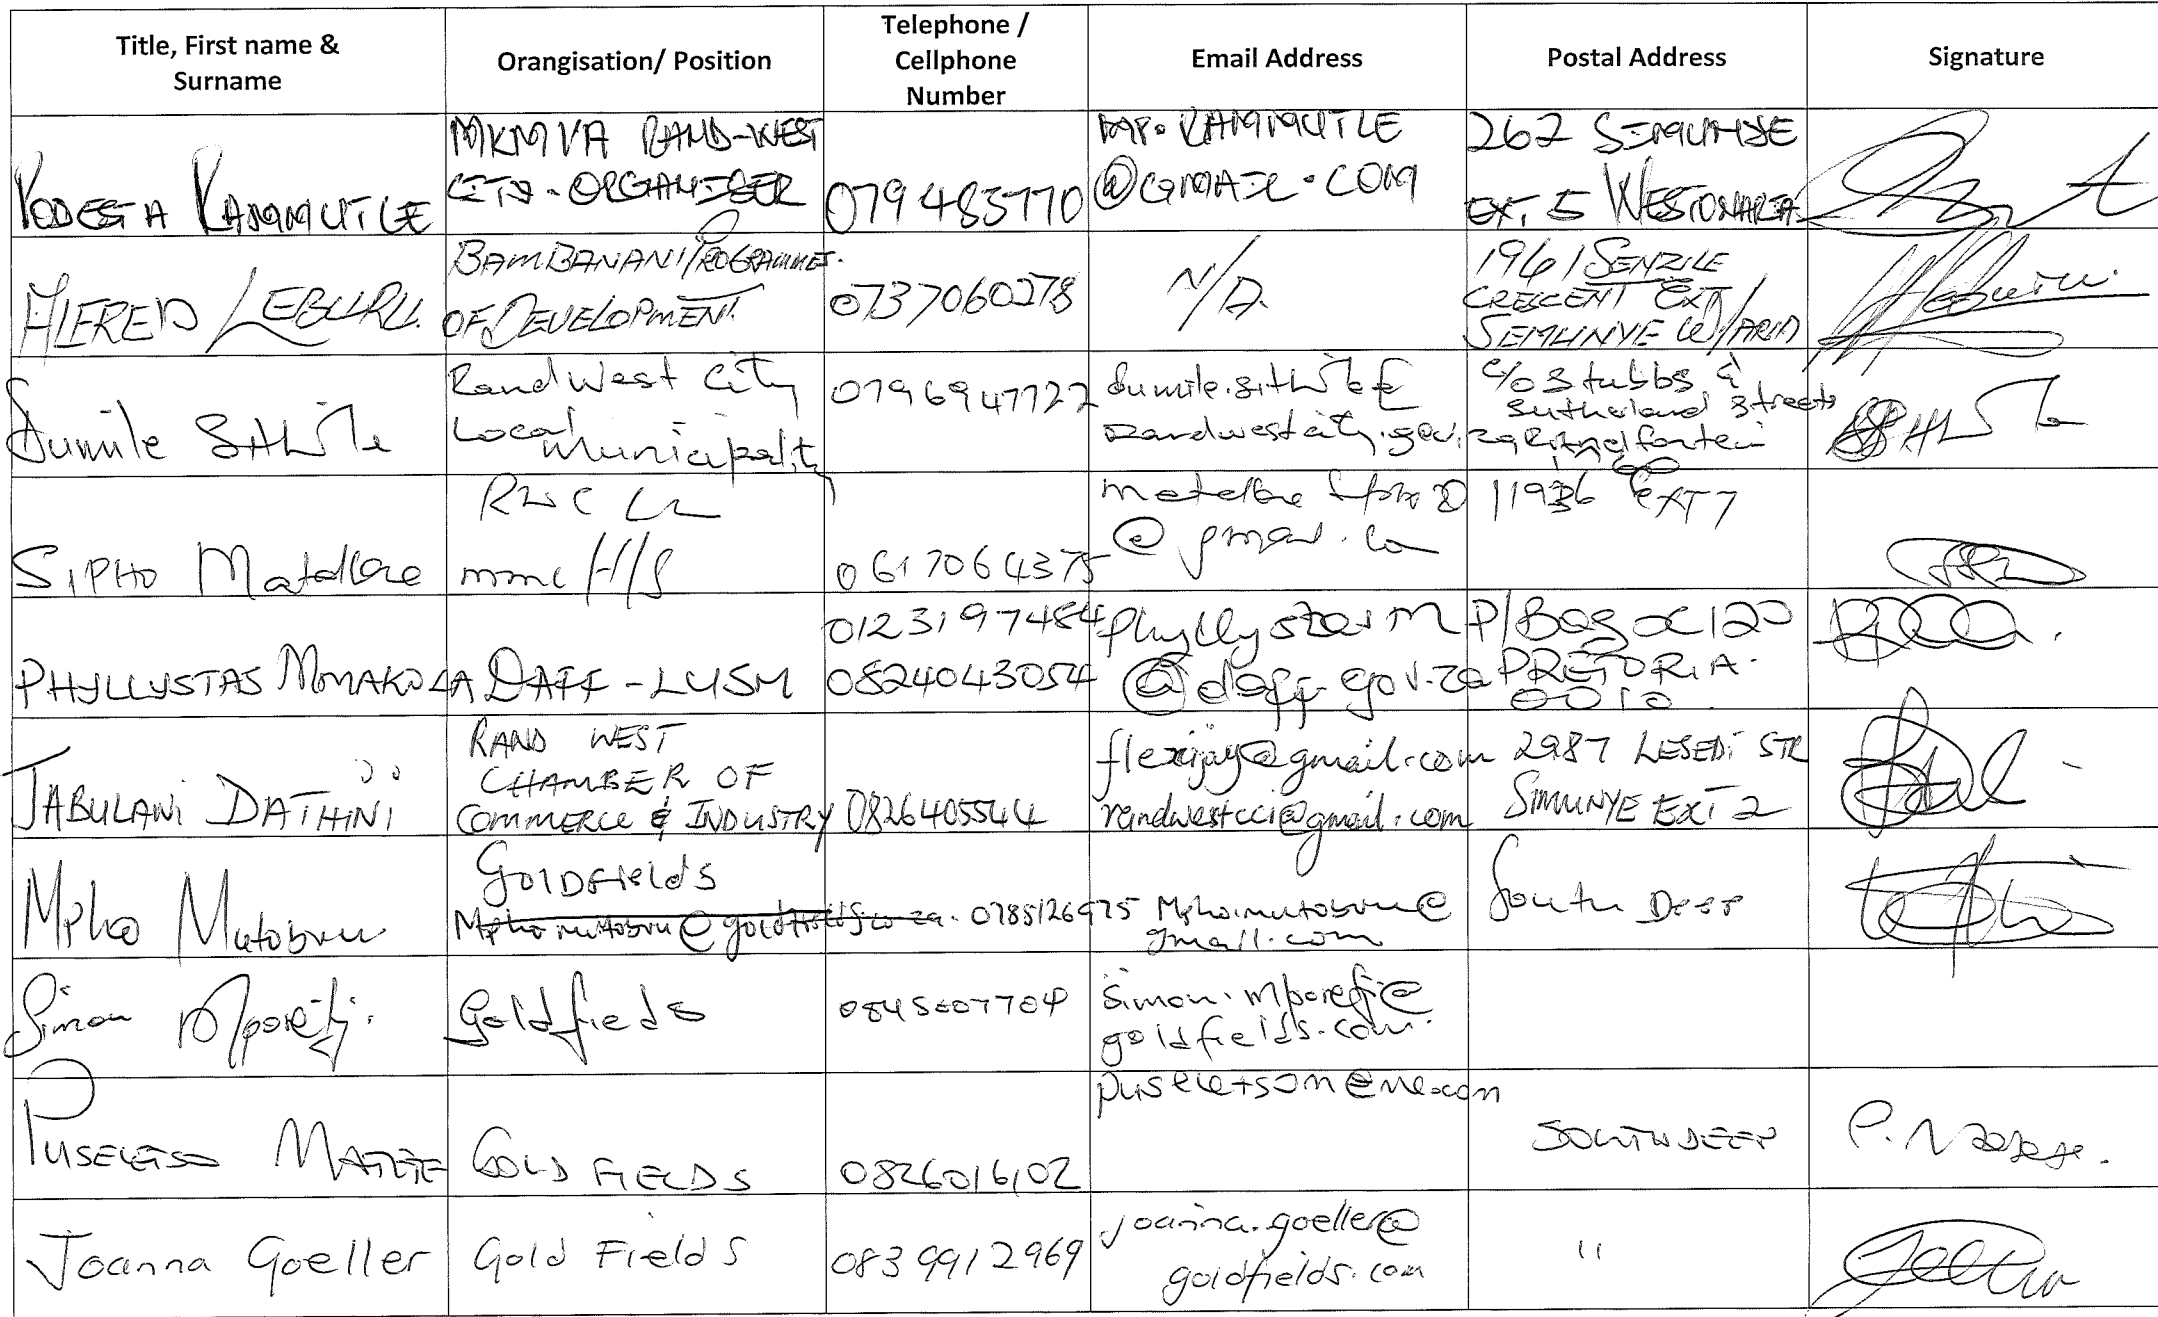 Title, First name &
Surname
Orangisation/ Position
Telephone /
Cellphone
Number
Email Address
Postal Address
Signature
MKMVA RAND-WEST
CITY-ORGANISER
@GMAIL.COM
EXT. 5
ALFRED LEBURU
BAMBANANI PROGRAMMES.
OF DEVELOPMENT
0737060278
N/A.
1961 SENZILE
CRESCENT EXT
Dumile Sithole
Rand West City
Local
Municipality
0796947722
dumile.sithole@
randwestcity.gov.za
c/o Stubbs &
Sutherland Streets
Randfontein
SIPHO
mmc H/S
0617064375
11936 EXT 7
PHYLLYSTAS MMAKOLA
DAFF - LUSM
0123197484
0824043054
phyllystasM
@daff.gov.za
P/Bag X120
PRETORIA.
0010
JABULANI DATHINI
RAND WEST
CHAMBER OF
COMMERCE & INDUSTRY
0826405544
flexijay@gmail.com
randwestcci@gmail.com
2987 LESEDI STR
SIMUNYE EXT 2
Mpho
GOLDFields
0785126975
gmail.com
South Deep
Simon
Goldfields
goldfields.com.
PUSELETSO
GOLD FIELDS
0826016102
SOUTH DEEP
Joanna Goeller
Gold Fields
0839912969
joanna.goeller@
goldfields.com
"